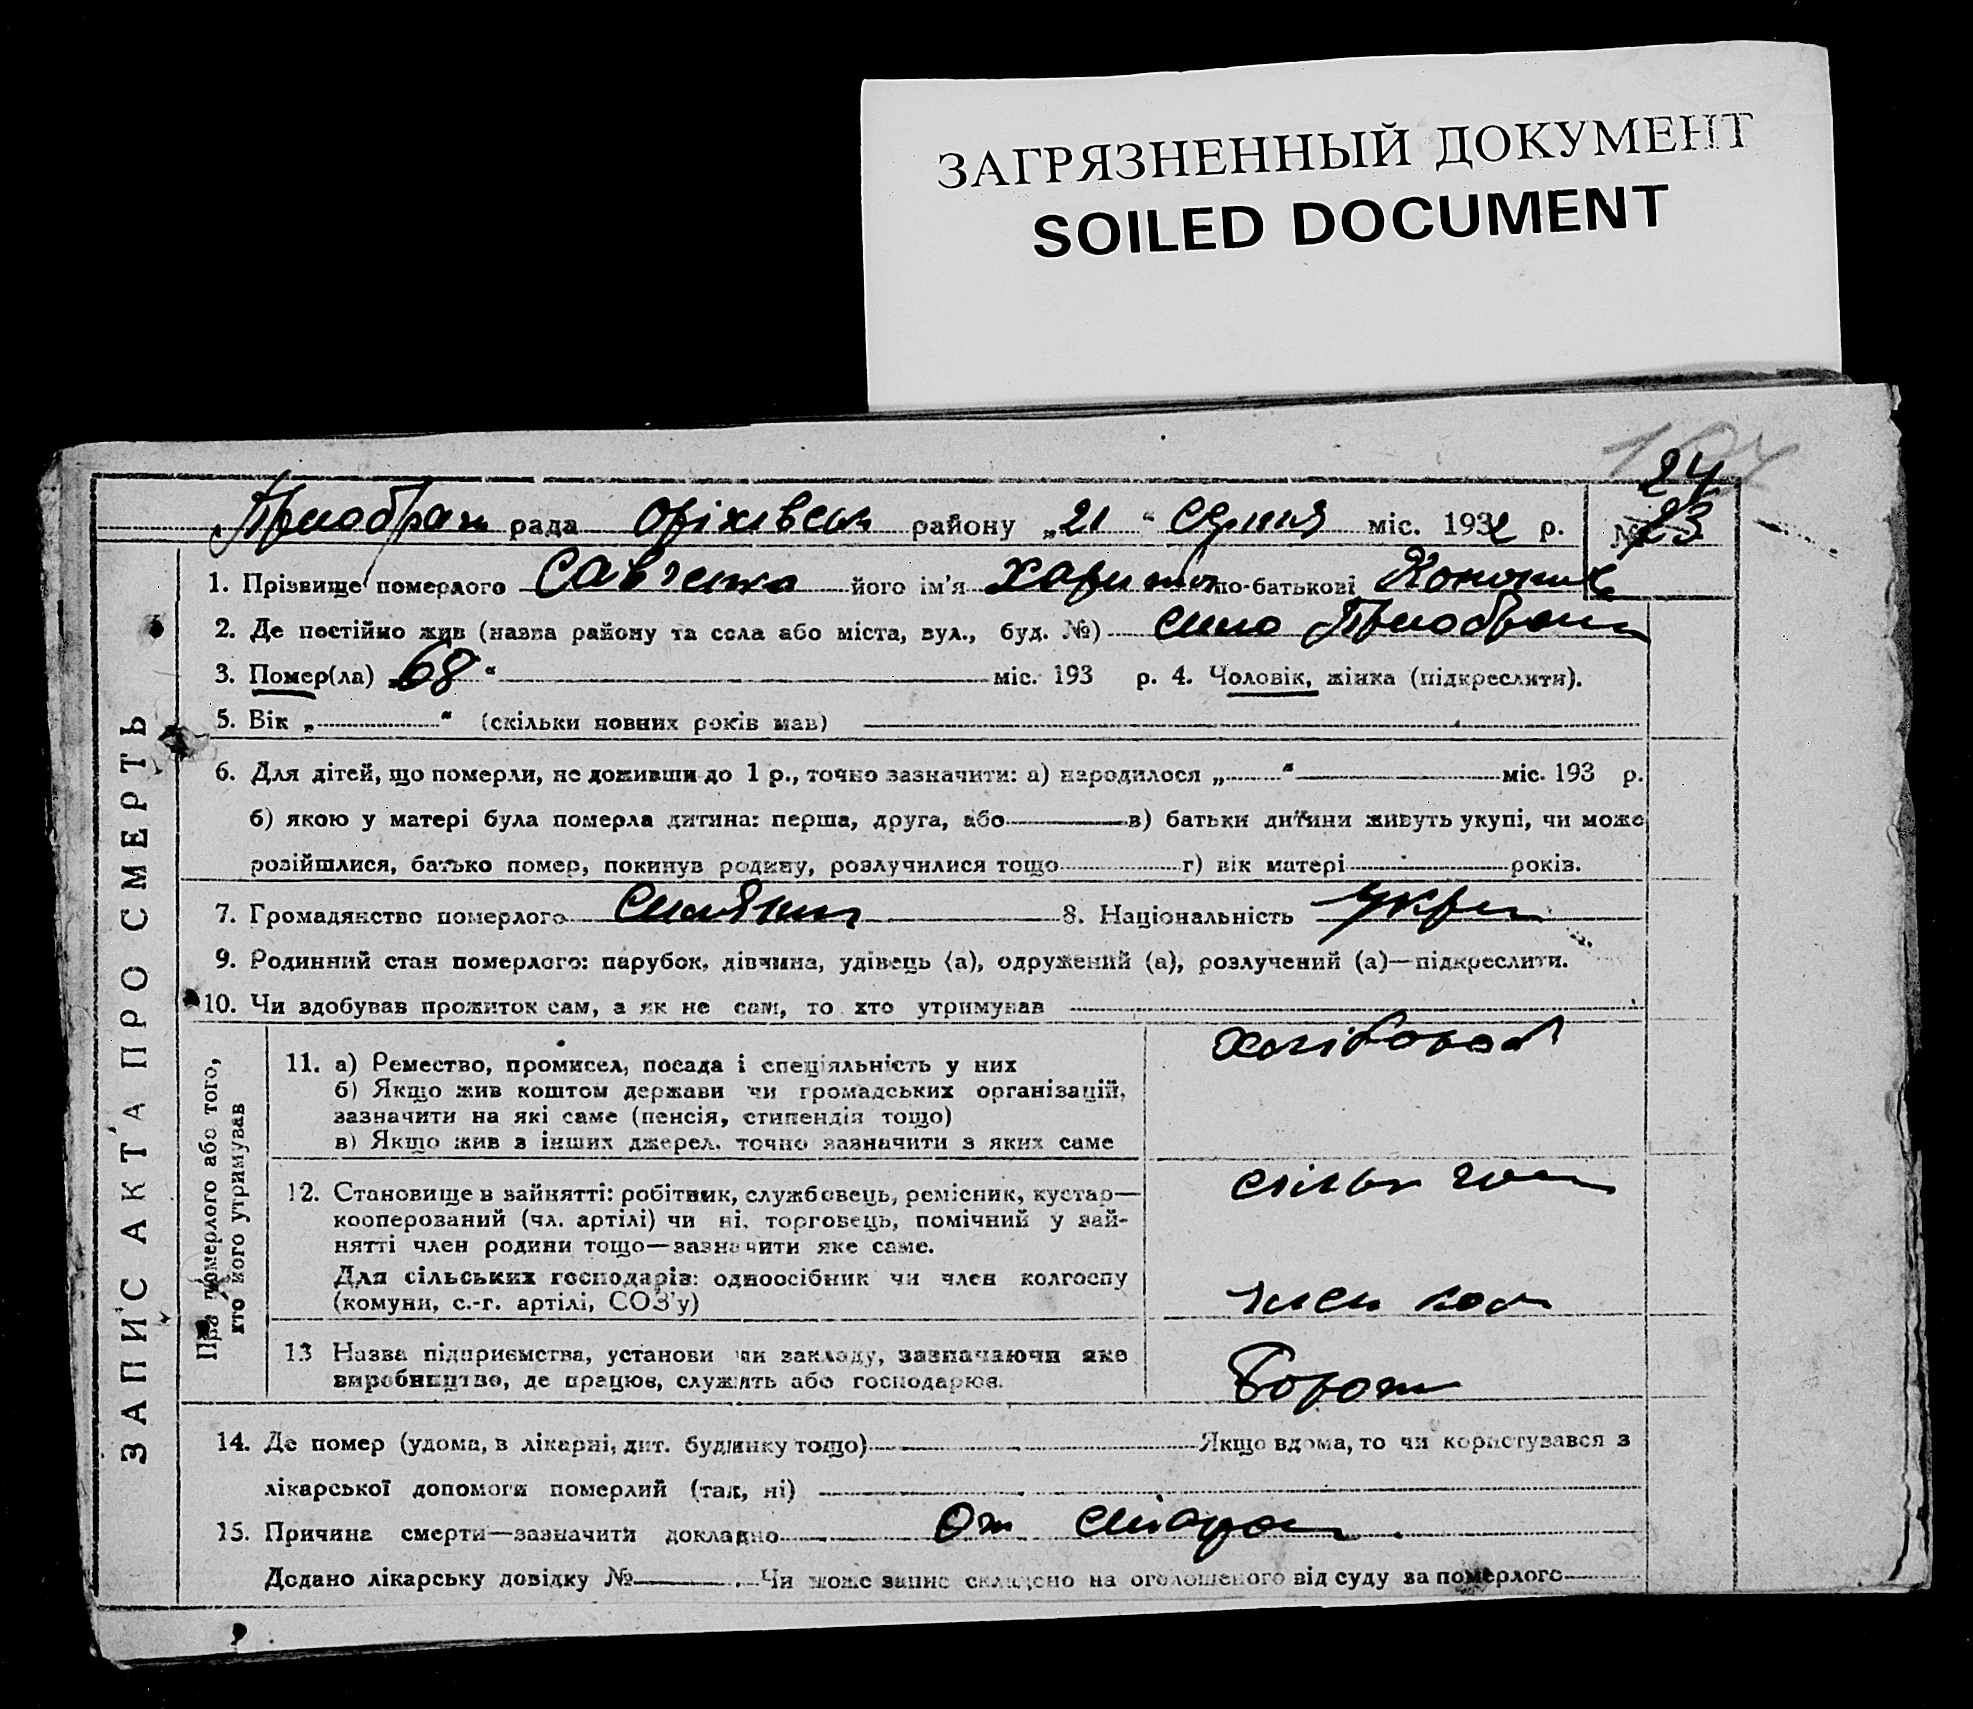 ЗАГРЯЗНЕННЫЙ ДОКУМЕНТ
SOILED DOCUMENT
24
рада Оріхівськ району „21“ Серпня міс. 1932 р. № 23
1. Прізвище померлого Савченко його ім'я Харитон по-батькові
2. Де постійно жив (назва району та села або міста, вул., буд. №) село
3. Помер(ла) „68“ міс. 193 р. 4. Чоловік, жінка (підкреслити).
5. Вік „ “ (скільки повних років мав)
6. Для дітей, що померли, не доживши до 1 р., точно зазначити: а) народилося „ “ міс. 193 р.
б) якою у матері була померла дитина: перша, друга, або в) батьки дитини живуть укупі, чи може
розійшлися, батько помер, покинув родину, розлучилися тощо г) вік матері років.
7. Громадянство померлого 8. Національність Укр
9. Родинний стан померлого: парубок, дівчина, удівець (а), одружений (а), розлучений (а)—підкреслити.
10. Чи здобував прожиток сам, а як не сам, то хто утримував
ЗАПИС АКТА ПРО СМЕРТЬ
Про померлого або того,
хто його утримував
11. а) Ремество, промисел, посада і спеціяльність у них
хлібороб
б) Якщо жив коштом держави чи громадських організацій,
зазначити на які саме (пенсія, стипендія тощо)
в) Якщо жив з інших джерел, точно зазначити з яких саме
12. Становище в зайнятті: робітник, службовець, ремісник, кустар—
кооперований (чл. артілі) чи ні, торговець, помічний у зай-
нятті член родини тощо—зазначити яке саме.
Для сільських господарів: одноосібник чи член колгоспу
(комуни, с.-г. артілі, СОЗ'у)
член кол
13 Назва підприємства, установи чи закладу, зазначаючи яке
виробництво, де працює, служить або господарює.
14. Де помер (удома, в лікарні, дит. будинку тощо) Якщо вдома, то чи користувався з
лікарської допомоги померлий (так, ні)
15. Причина смерти—зазначити докладно От
Додано лікарську довідку № Чи може запис складено на оголошеного від суду за померлого